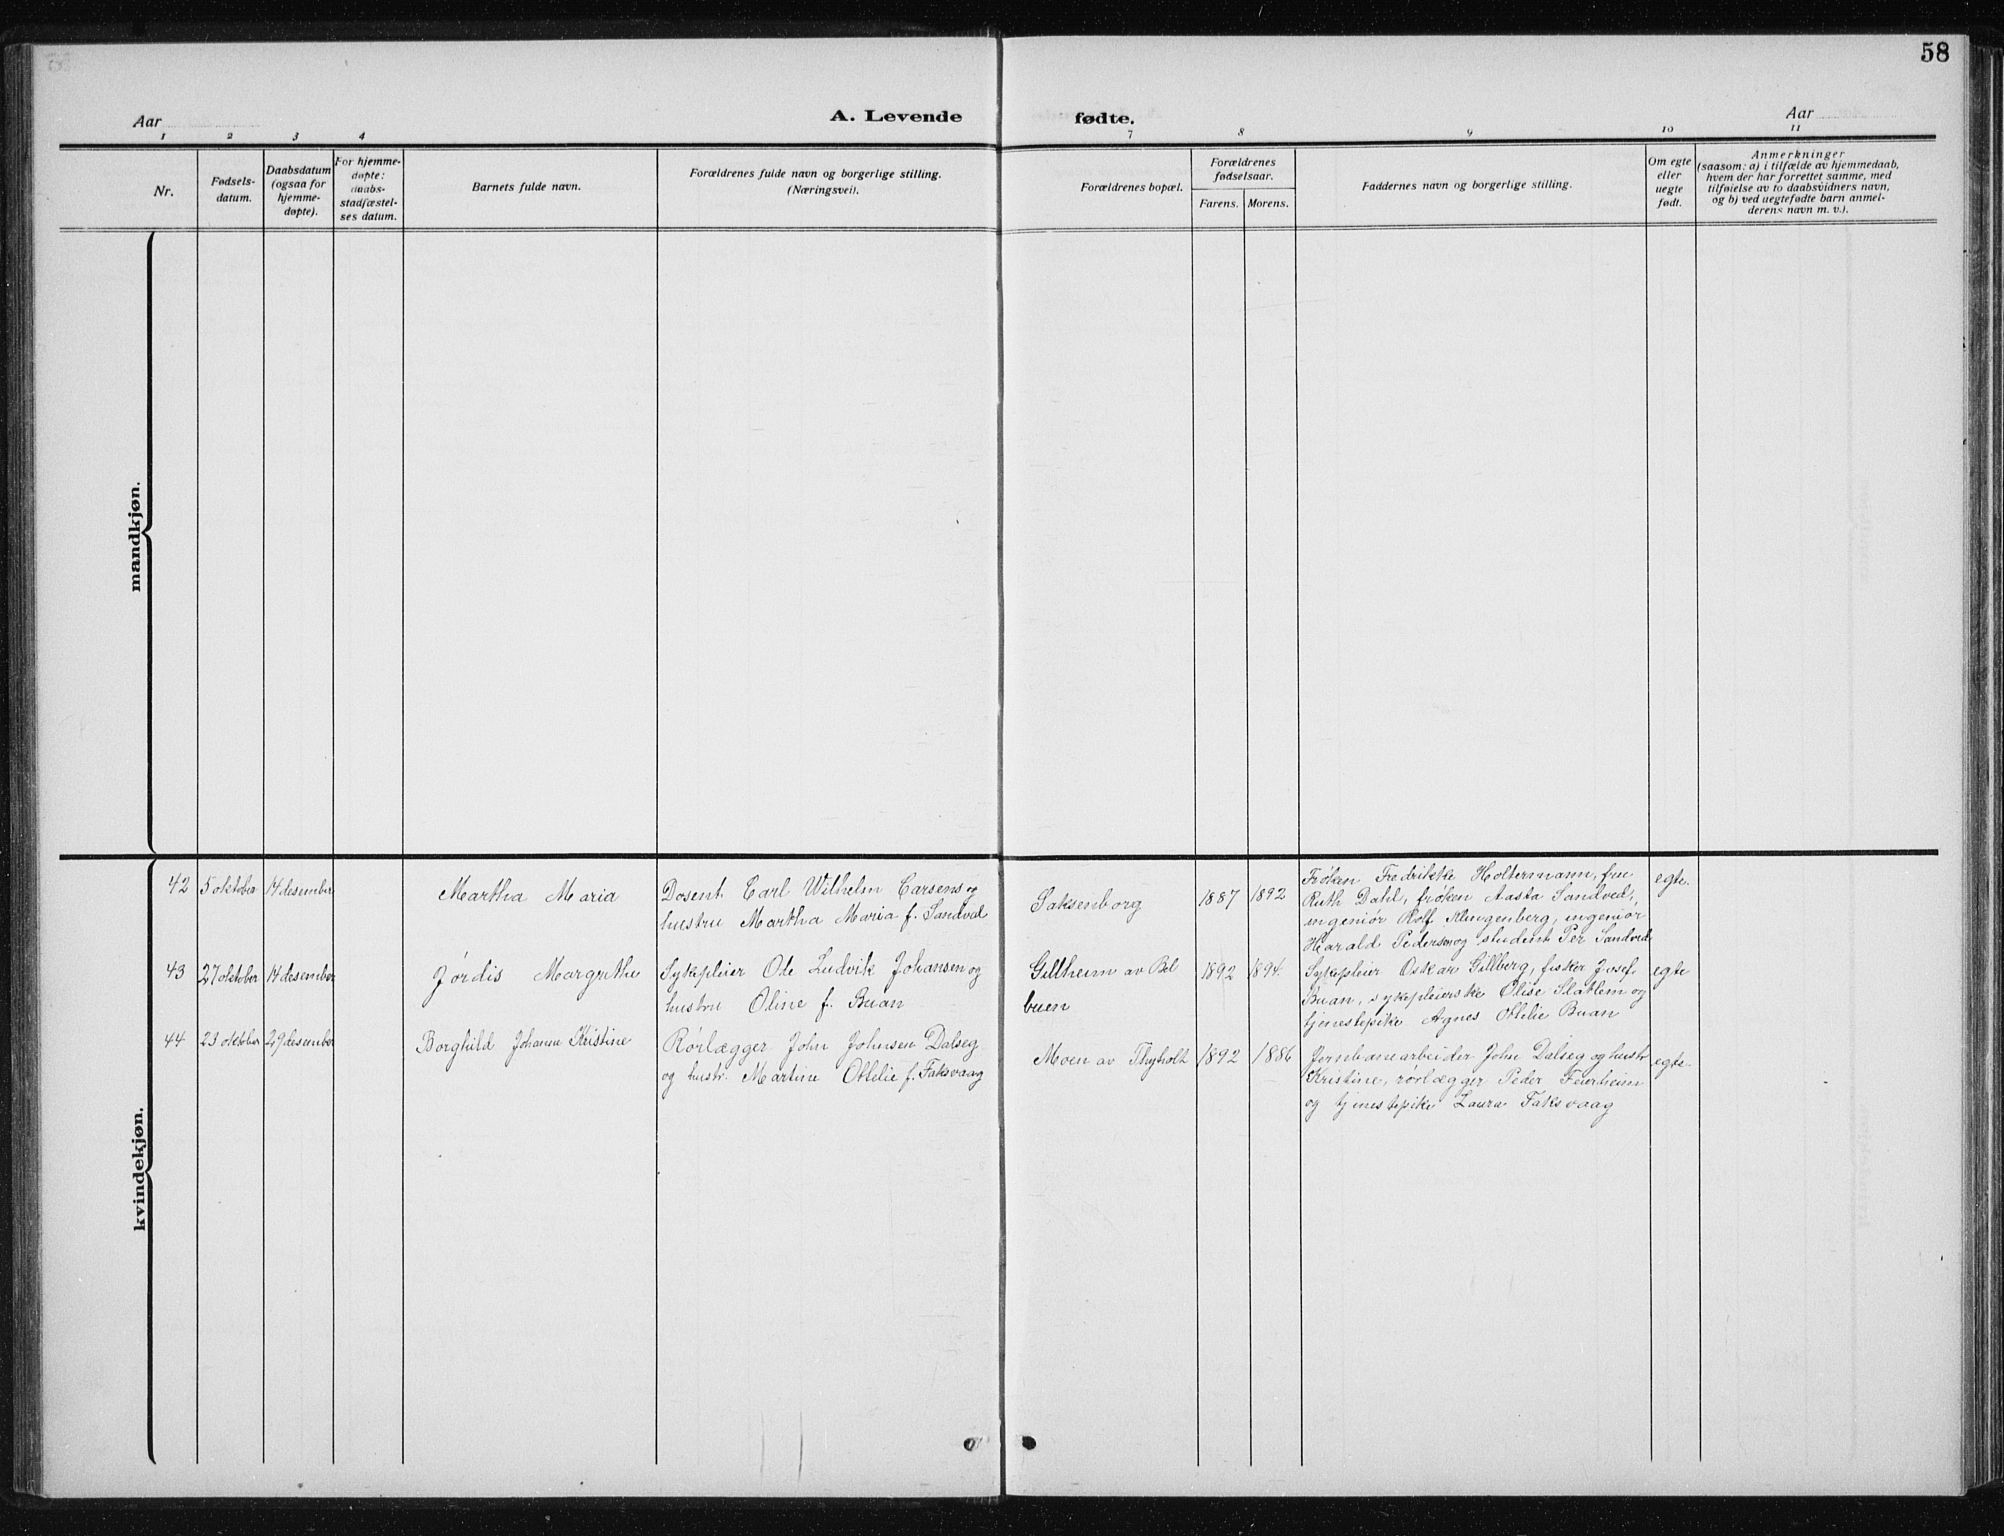 58
Aar
A. Levende
fødte.
Aar
1 2 3 4 7 8 9 10 11
Nr.
Fødsels-
datum.
Daabsdatum
(ogsaa for
hjemme-
døpte).
For hjemme-
døpte:
daabs-
stadfæstel-
ses datum.
Barnets fulde navn.
Forældrenes fulde navn og borgerlige stilling.
(Næringsvei).
Forældrenes bopæl.
Forældrenes
fødselsaar.
Farens. Morens.
Faddernes navn og borgerlige stilling.
Om egte
eller
uegte
født.
Anmerkninger
(saasom: a) i tilfælde av hjemmedaab,
hvem der har forrettet samme, med
tilføielse av to daabsvidners navn,
og b) ved uegtefødte barn anmel-
derens navn m. v.).
mandkjøn.
kvindekjøn.
42 5 oktober 14 desember Martha Maria
Dosent Carl Wilhelm Carsens og
hustru Martha Maria f. Sandved
Saksenborg 1887 1892
Frøken Fredrikke Holtermann, frue
Ruth Dahl, frøken Aasta Sandved,
ingeniør Rolf Klingenberg, ingeniør
Harald Pedersen og student Per Sandved
egte.
43 27 oktober 14 desember Jørdis Margrethe
Sykepleier Ole Ludvik Johansen og
hustru Oline f. Buan
Gillheim av Bel
buen
1892 1894.
Sykepleier Oskar Gillberg, fisker Josef
Buan, sykepleierske Olise Slatlem og
tjenestepike Agnes Otelie Buan
egte
44 23 oktober 29 desember Borghild Johanna Kristine
Rørlægger John Johnsen Dalseg
og hustr. Martine Otelie f. Faksvaag
Moen av Thyholt 1892 1886
Jernbanearbeider John Dalseg og hustr.
Kristine, rørlægger Peder Feierheim
og tjenestepike Laura Faksvaag
egte.